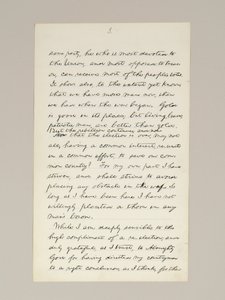 3.
same party, he who is most devoted to
the Union, and most opposed to treas-
on, can receive most of the people's votes.
It shows also, to the extent yet known
that we have more men now, than
we had when the war began. Gold
is good in its place; but living, brave,
patriotic men, are better than gold.
But the rebellion continues; and now
that the election is over, may not
all, having a common interest, re-unite
in a common effort, to save our com-
mon country? For my own part I have
striven, and shall strive to avoid
placing any obstacle in the way. So
long as I have been here I have not
willingly planted a thorn in any
man's bosom.
While I am deeply sensible to the
high compliment of a re-election; and
duly grateful, as I trust, to Almighty
God for having directed my countrymen
to a right conclusion, as I think, for their